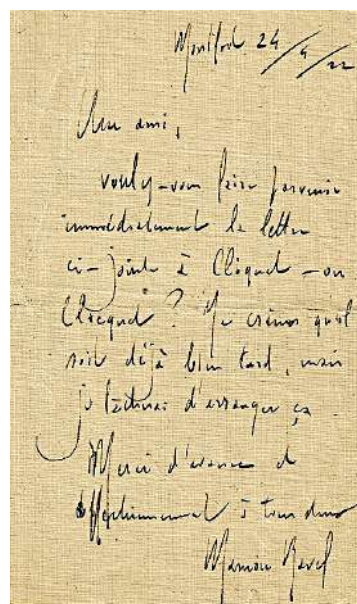 Montfort 24/4/22
Mon ami,
voulez-vous faire parvenir
immédiatement la lettre
ci-jointe à Cliquet - ou
Clicquet ? Je crains qu'il
soit déjà bien tard, mais
je tâcherai d'arranger ça
Merci d'avance et
affectueusement à tous deux
Maurice Ravel